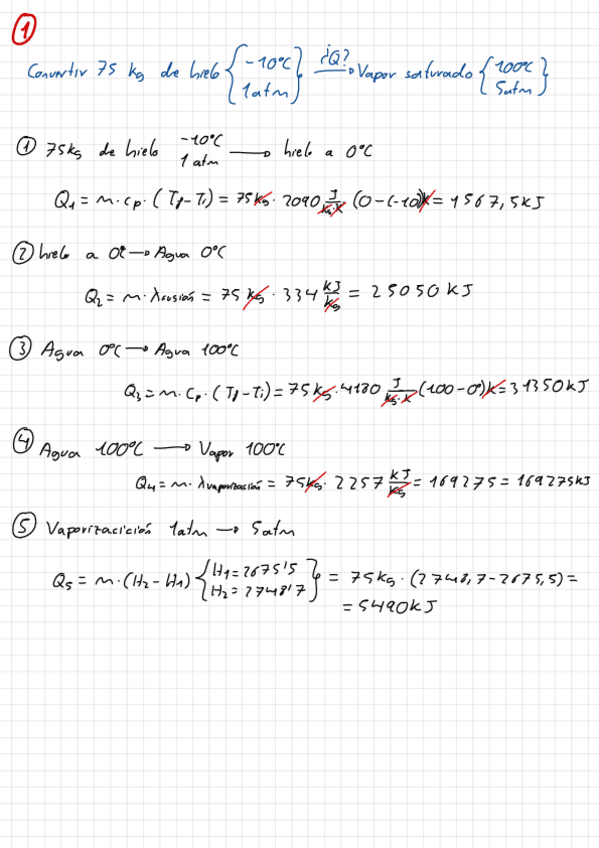 1
Convertir 75 kg de hielo {-10ºC 1atm} ¿Q? → Vapor saturado {100ºC 5atm}
① 75kg de hielo -10ºC 1 atm → hielo a 0ºC
Q₁ = m · cp · (Tf-Ti) = 75kg · 2090 J/kg·K (0-(-10))K = 1567,5KJ
② hielo a 0º → Agua 0ºC
Q₂ = m · λfusión = 75 kg · 334 kJ/kg = 25050 KJ
③ Agua 0ºC → Agua 100ºC
Q₃ = m · Cp · (Tf-Ti) = 75kg · 4180 J/kg·K (100-0º)K = 31350KJ
④ Agua 100ºC → Vapor 100ºC
Q₄ = m · λvaporización = 75kg · 2257 KJ/kg = 169275 = 169275KJ
⑤ Vaporizacición 1atm → 5atm
Q₅ = m · (H₂-H₁) {H₁=2675'5 H₂=2748'7} = 75kg · (2748,7-2675,5) =
= 5490KJ